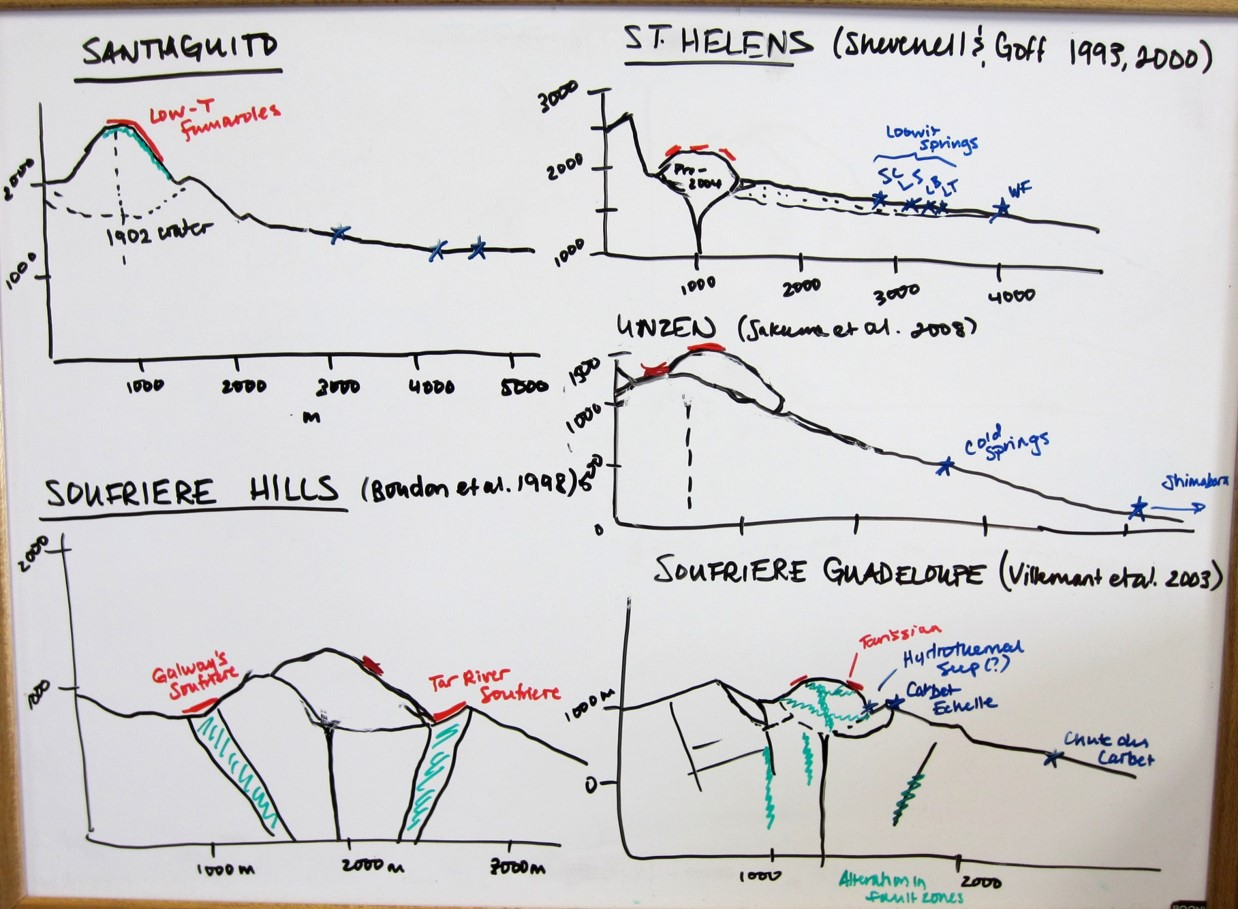 SANTIAGUITO
Low-T
Fumaroles
2000
1902 crater
1000
1000 2000 3000 4000 5000
m
ST. HELENS (Shevenell & Goff 1993, 2000)
3000
2000
1000
Pre-
2004
Loowit
Springs
SC
L S LB LT
WF
1000 2000 3000 4000
UNZEN (Sakuma et al. 2008)
1500
1000
500
0
Cold
Springs
Shimabara
SOUFRIERE HILLS (Boudon et al. 1998)
2000
1000
Galway's
Soufriere
Tar River
Soufriere
1000 m 2000 m 3000 m
SOUFRIERE GUADELOUPE (Villemant et al. 2003)
Tarissian
Hydrothermal
seep (?)
Carbet
Echelle
1000 m
0
Chute du
Carbet
1000 2000
Alteration in
fault zones